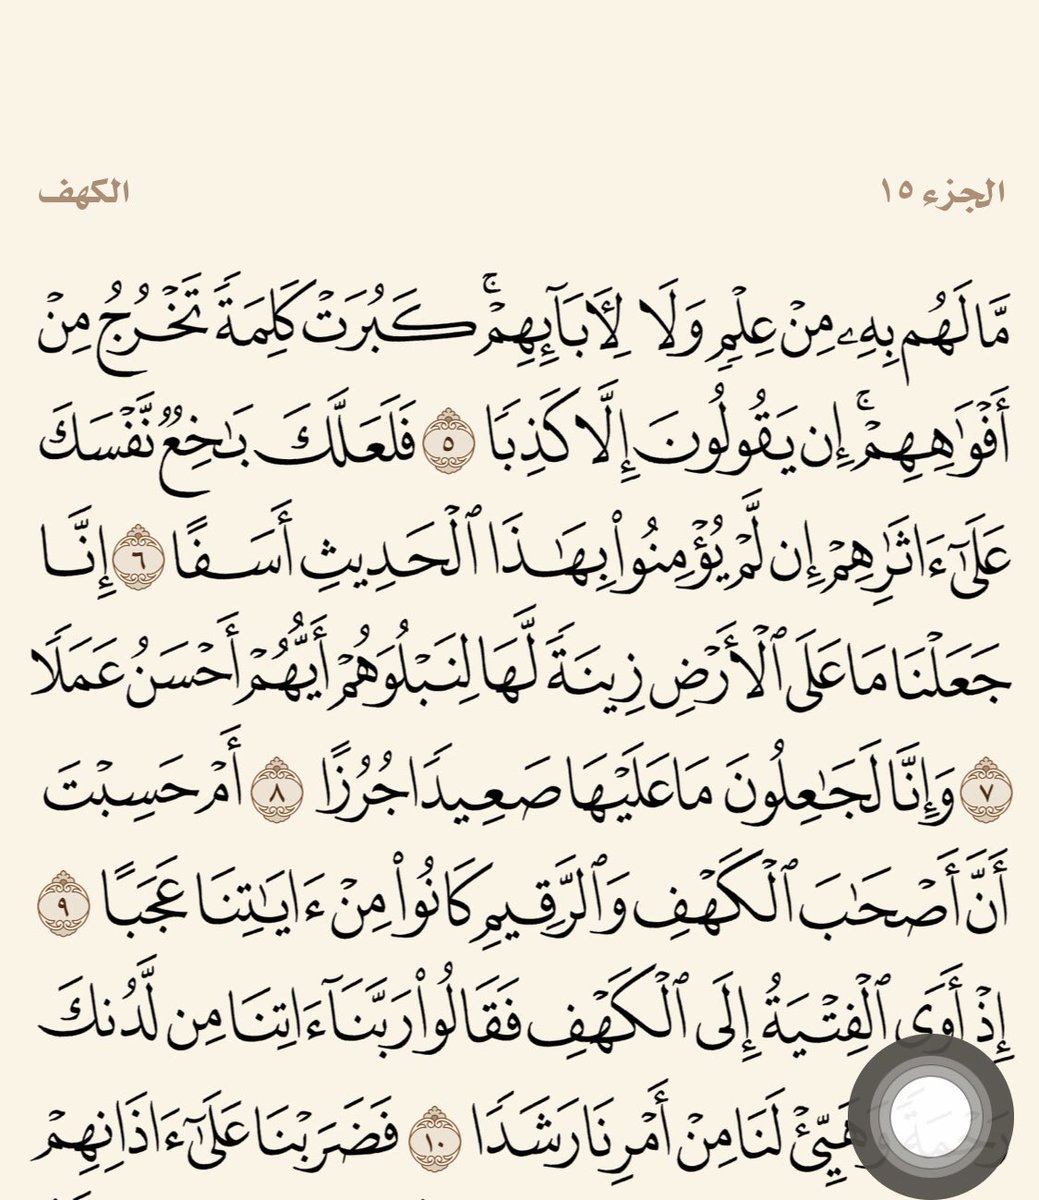 الجزء ١٥
الكهف
مَّا لَهُم بِهِۦ مِنْ عِلْمٍ وَلَا لِأٓبَآئِهِمْۚ كَبُرَتْ كَلِمَةً تَخْرُجُ مِنْ
أَفْوَٰهِهِمْۚ إِن يَقُولُونَ إِلَّا كَذِبًا ٥ فَلَعَلَّكَ بَـٰخِعٌ نَّفْسَكَ
عَلَىٰٓ ءَاثَـٰرِهِمْ إِن لَّمْ يُؤْمِنُوا۟ بِهَـٰذَا ٱلْحَدِيثِ أَسَفًا ٦ إِنَّا
جَعَلْنَا مَا عَلَى ٱلْأَرْضِ زِينَةً لَّهَا لِنَبْلُوَهُمْ أَيُّهُمْ أَحْسَنُ عَمَلًا
٧ وَإِنَّا لَجَـٰعِلُونَ مَا عَلَيْهَا صَعِيدًا جُرُزًا ٨ أَمْ حَسِبْتَ
أَنَّ أَصْحَـٰبَ ٱلْكَهْفِ وَٱلرَّقِيمِ كَانُوا۟ مِنْ ءَايَـٰتِنَا عَجَبًا ٩
إِذْ أَوَى ٱلْفِتْيَةُ إِلَى ٱلْكَهْفِ فَقَالُوا۟ رَبَّنَآ ءَاتِنَا مِن لَّدُنكَ
وَهَيِّئْ لَنَا مِنْ أَمْرِنَا رَشَدًا ١٠ فَضَرَبْنَا عَلَىٰٓ ءَاذَانِهِمْ